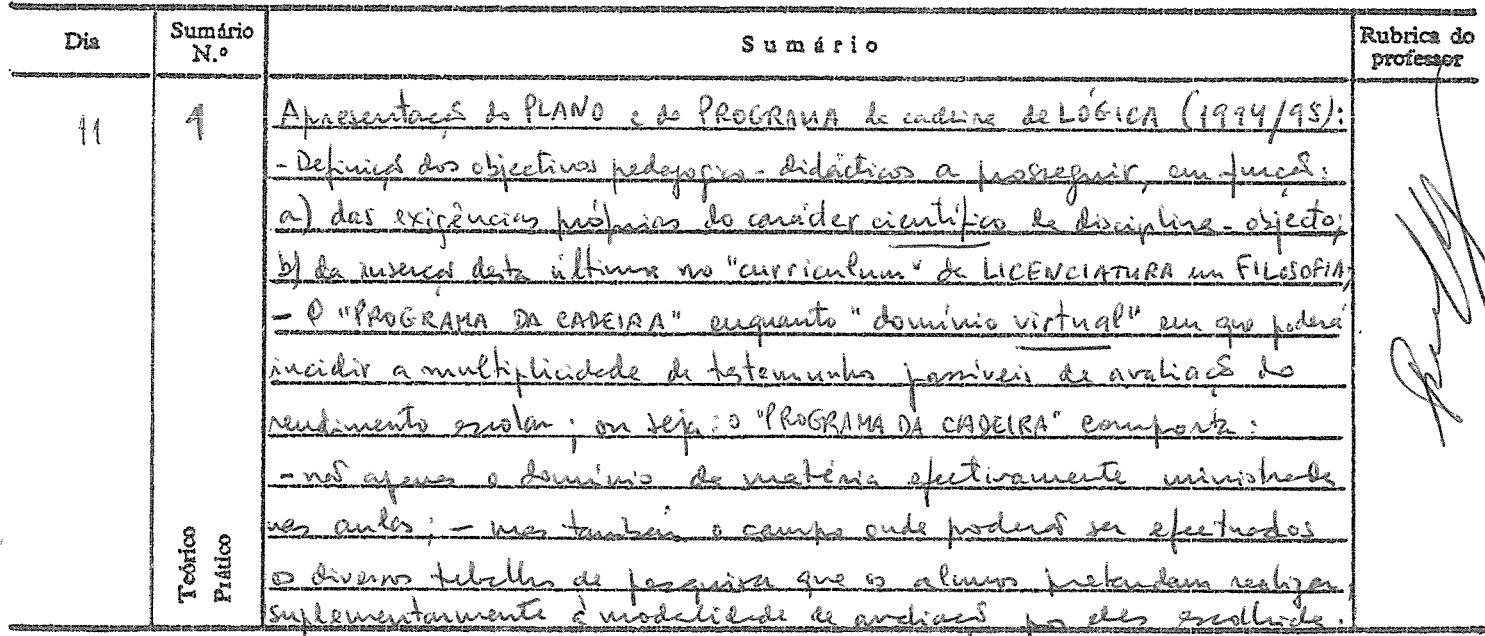 Dia
Sumário N.º
Sumário
Rubrica do professor
11
1
Apresentação do PLANO e do PROGRAMA da cadeira de LÓGICA (1994/95):
- Definição dos objectivos pedagógico-didácticos a prosseguir, em função:
a) das exigências próprias do carácter científico da disciplina-objecto;
b) da inserção desta última no "curriculum" da LICENCIATURA em FILOSOFIA;
- O "PROGRAMA DA CADEIRA" enquanto "domínio virtual" em que poderá
incidir a multiplicidade de testemunhos passíveis de avaliação do
rendimento escolar; ou seja: o "PROGRAMA DA CADEIRA" comporta:
- não apenas o domínio da matéria efectivamente ministrada
nas aulas; - mas também o campo onde poderão ser efectuados
os diversos trabalhos de pesquisa que os alunos pretendam realizar,
suplementarmente à modalidade de avaliação por eles escolhida.
Teórico
Prático